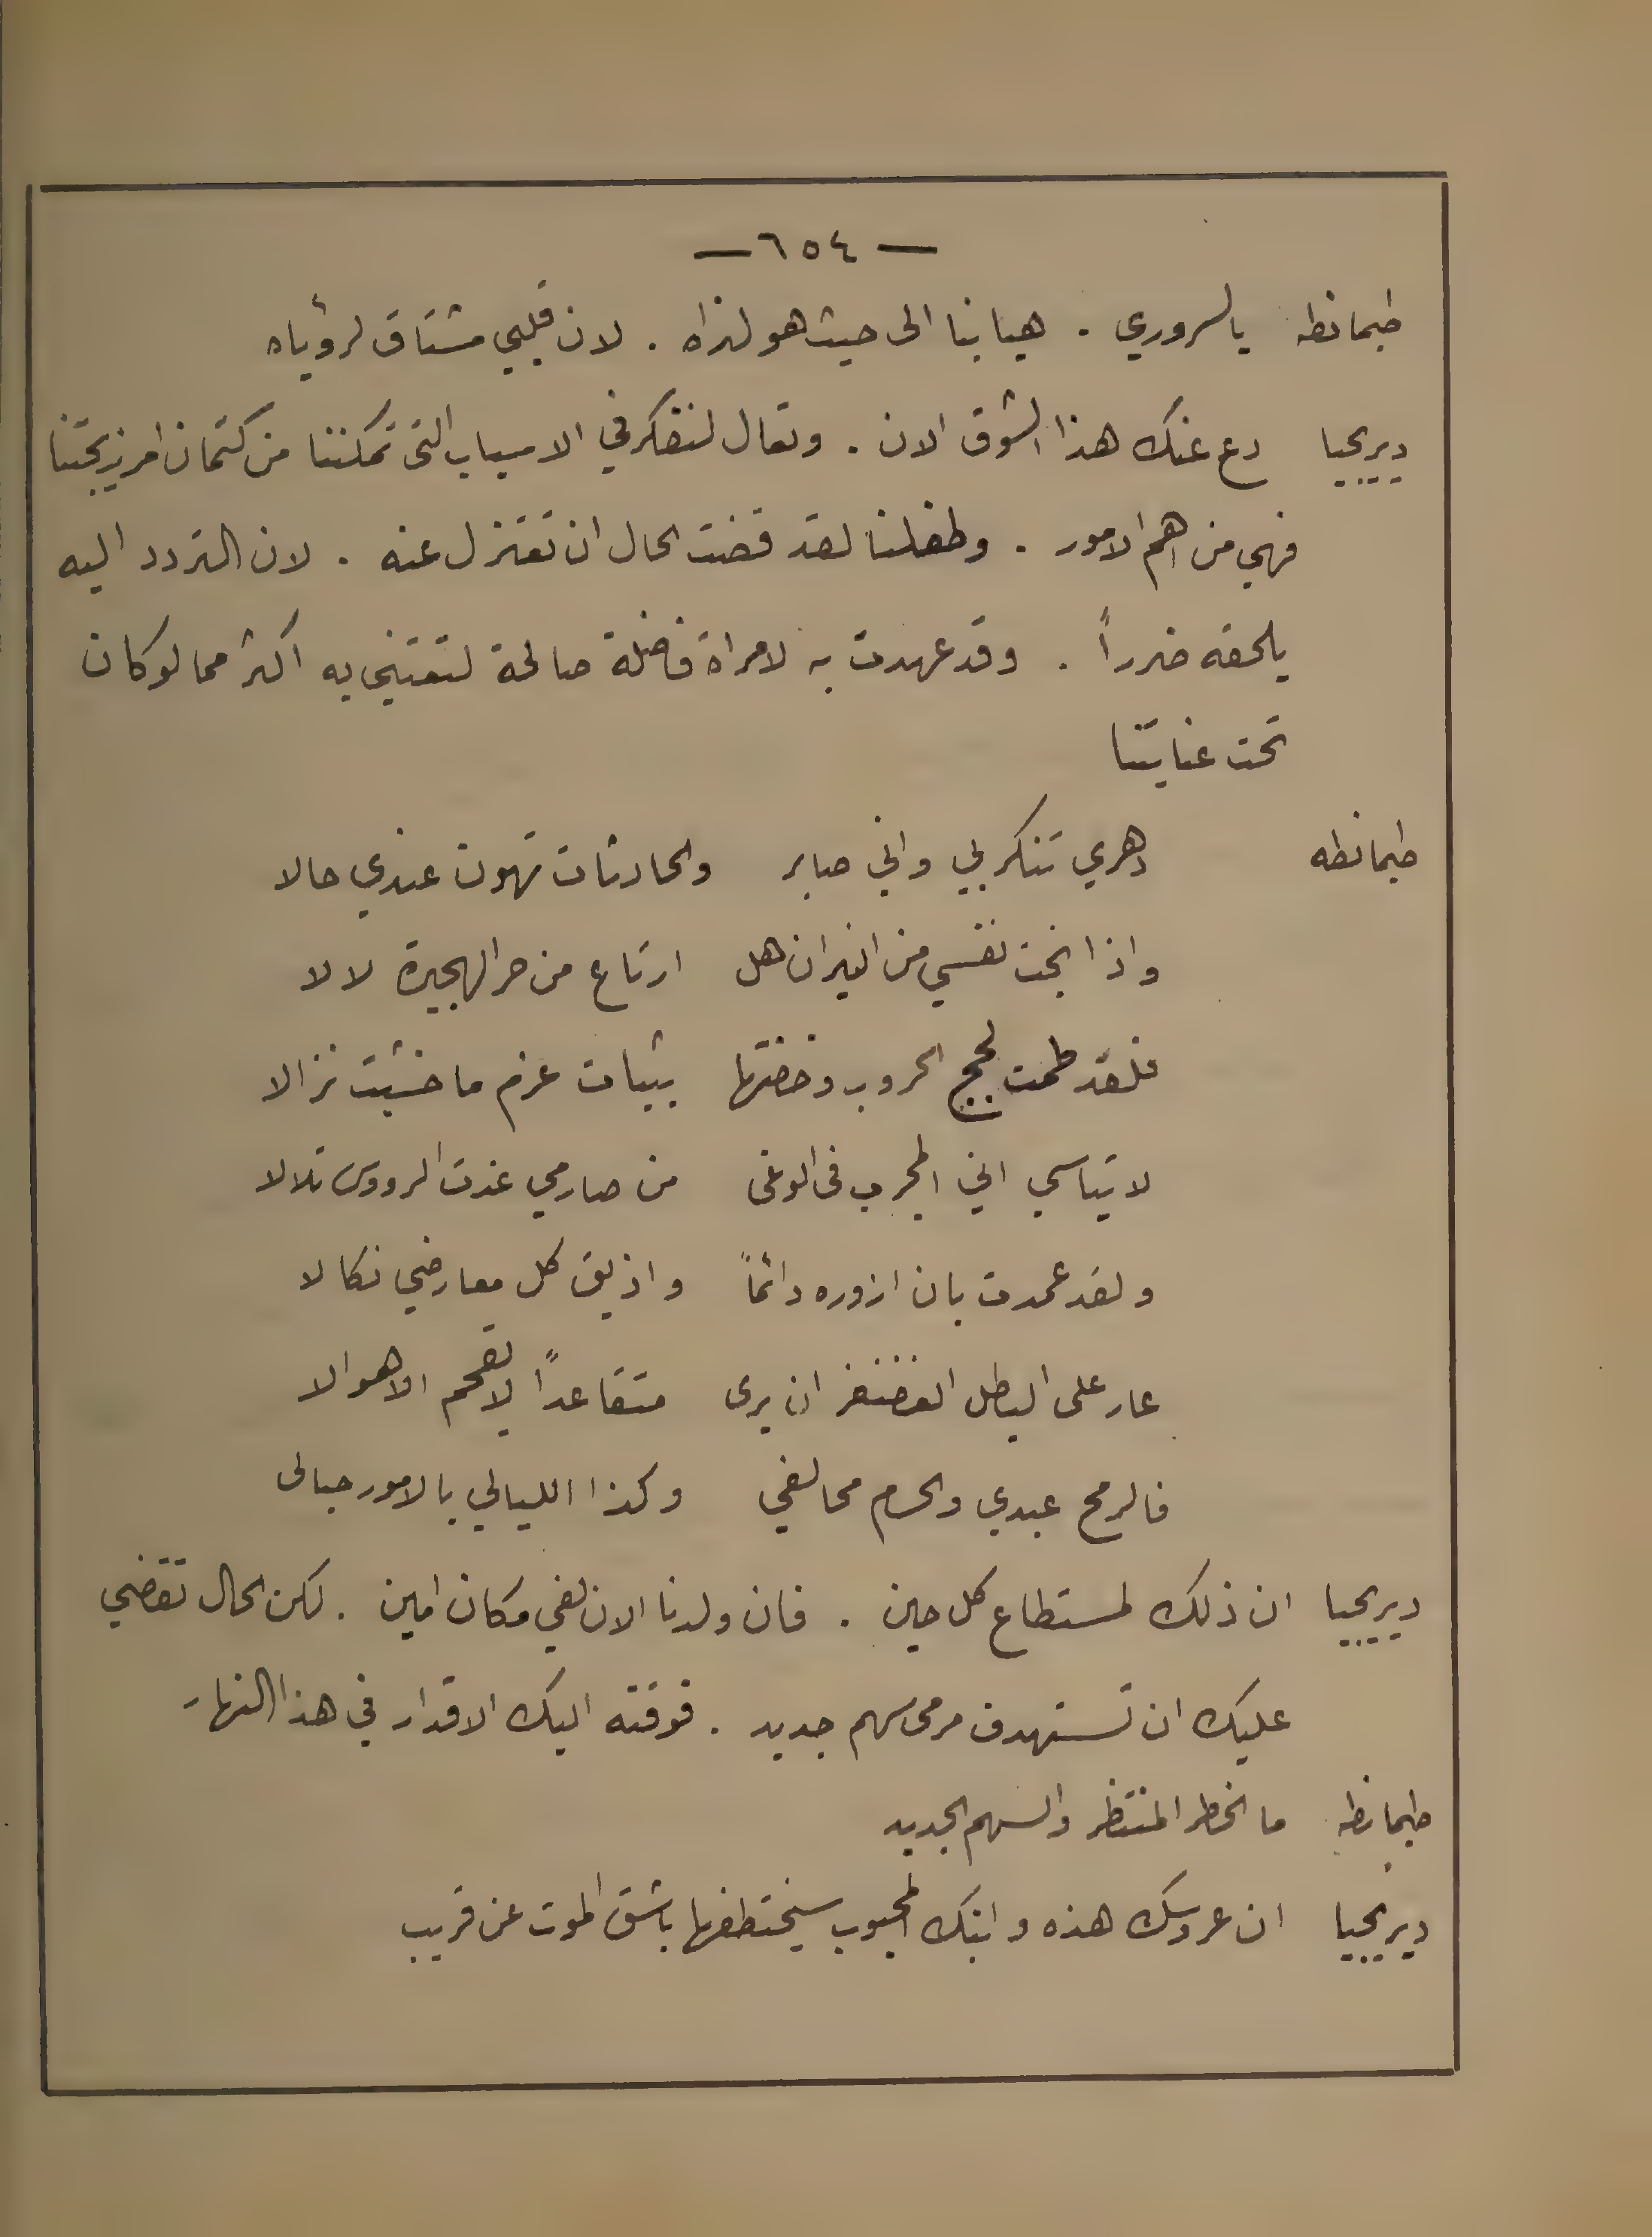 — ٦٥٤ —
طيمانطه يالسروري . هيا بنا الى حيث هو لنراه . لان قلبي مشتاق لرؤياه
ديريحيا دع عنك هذا الشوق الان . وتعال لنفتكر في الاسباب التى تمكننا من كتمان امر زيجتنا
فهي من اهم الامور . وطفلنا لقد قضت الحال ان نعتزل عنه . لان التردد اليه
يلحقه ضرراً . وقد عهدت به لامراة فاضلة صالحة لتعتني به اكثر مما لو كان
تحت عنايتنا
طيمانطه دهري تنكر لي واني صابر والحادثات تهون عندي حالا
واذا نجت نفسي من النيران هل ارتاع من حر الهجيرة لا لا
فلقد طمت لجج الحروب وخضتها بثبات عزم ما خشيت نزالا
لا تيأسي اني المجرب فى الوغى من صارمي غدت الرووس تلالا
ولقد عمدت بان ازوره دائماً واذيق كل معارضي نكالا
عار على البطل الغضنفر ان يرى متقاعداً لا يقحم الاهوالا
فالرمح عبدي والحسام محالفي وكذا الليالي بالامور حبالى
ديريحيا ان ذلك لمستطاع كل حين . فان ولدنا الان لفي مكان امين . لكن الحال تقضي
عليك ان تستهدف مرمى سهم جديد . فوقته اليك الاقدار في هذا النهار
طيمانطه ما الخطر المنتظر والسهم الجديد
ديريحيا ان عروسك هذه وابنك المحبوب سيختطفها باشق الموت عن قريب